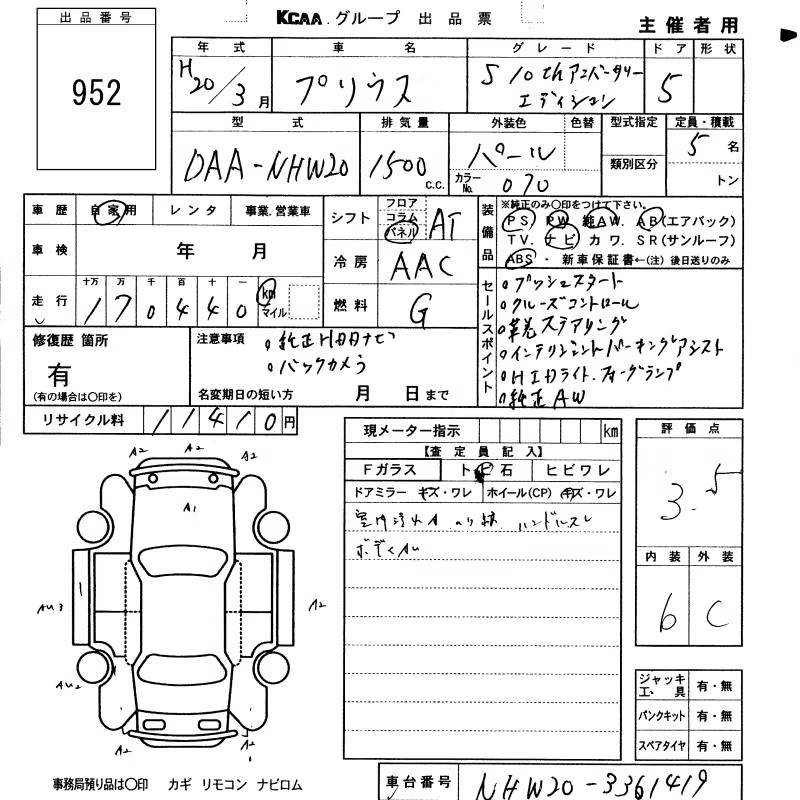 出品番号
KCAA.グループ 出品票
主催者用
952
年式 車名 グレード ドア 形状
H20/3月 プリウス S 10thアニバーサリーエディション 5
型式 排気量 外装色 色替 型式指定 定員・積載
DAA-NHW20 1500 C.C. パール 5名
カラーNo. 070 類別区分 トン
車歴 自家用 レンタ 事業.営業車
シフト フロア コラム パネル AT
装備品 ※純正のみ〇印をつけて下さい。
PS PW 純AW. AB(エアバック)
TV. ナビ カワ. SR(サンルーフ)
ABS ・ 新車保証書←(注)後日送りのみ
車検 年 月
冷房 AAC
走行 十万 万 千 百 十 一
170440 km マイル
燃料 G
セールスポイント
。プッシュスタート
。クルーズコントロール
。革巻ステアリング
。インテリジェントパーキングアシスト
。HIDライト.フォグランプ
。純正AW
修復歴 箇所
有
(有の場合は〇印を)
注意事項
。純正HDDナビ
。バックカメラ
名変期日の短い方 月 日まで
リサイクル料 11410円
現メーター指示 km
【査定員記入】
Fガラス ト ビ 石 ヒビワレ
ドアミラー キズ・ワレ ホイール(CP) キズ・ワレ
室内汚れA ハンドルスレ
評価点
3.5
内装 外装
6 C
A2 A2 A2
A1
AU3 A2
AU2
A2 A2
ジャッキ工具 有・無
パンクキット 有・無
スペアタイヤ 有・無
事務局預り品は〇印 カギ リモコン ナビロム
車台番号 NHW20-3361419